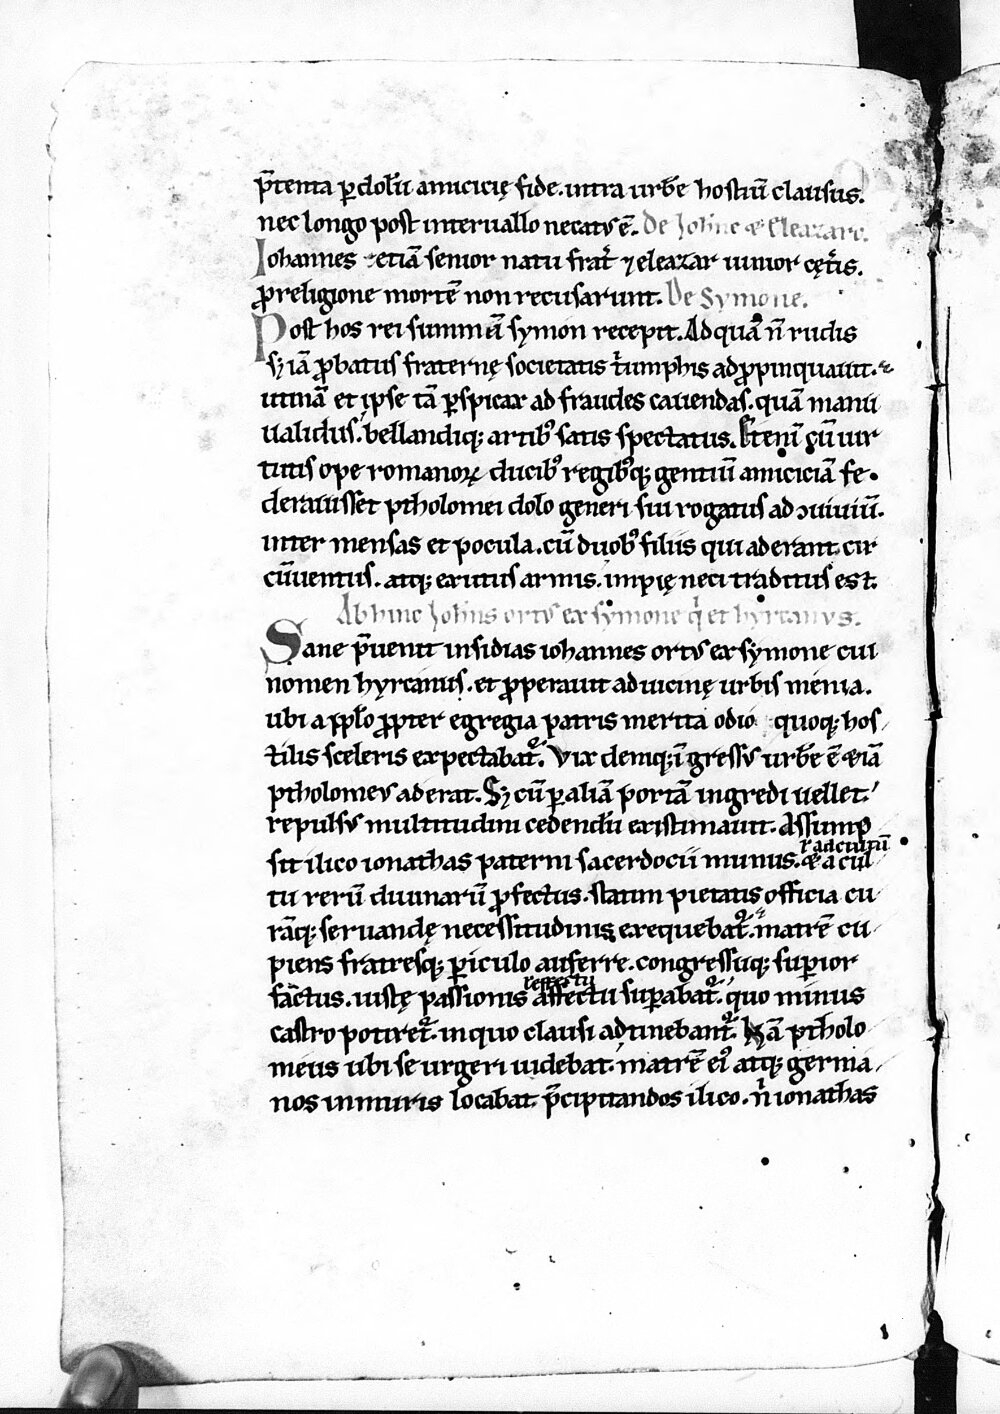 p̄tenta ꝑ dolū amicicię fide. intra urbē hostiū clausus.
nec longo post interuallo necatꝰ ē. De Joh̄ne ⁊ Eleazaro.
Iohannes etiā senior natu frat̄ ⁊ eleazar iunior cęt̄is.
ꝓ religione mortē non recusarunt. De Symone.
Post hos rei summā symon recepit. Ad quā n̄ rudis
sꝫ iā ꝓbatus fraternę societatis t̄umphis adꝓpinquauit.
utinā et ipse tā ꝑspicax ad fraudes cauendas. quā manu
ualidus. bellandiqꝫ artibꝰ satis spectatus. Etenī cū uir
tutis ope romanoꝝ ducibꝰ regibꝰqꝫ gentiū amiciciā fe
derauisset ptholomei dolo generi sui rogatus ad ꝯuiuiū.
inter mensas et pocula. cū duobꝰ filiis qui aderant. cir
cūuentus. atqꝫ exutus armis. impię neci traditus est.
Ab hinc Joh̄ns ortꝰ ex symone q̄ et hyrcanus.
Sane p̄uenit insidias iohannes ortꝰ ex symone cui
nomen hyrcanus. et ꝓperauit ad uicinę urbis menia.
ubi a pp̄lo ꝓpter egregia patris merita odio quoqꝫ hos
tilis sceleris expectabat᷑. Vix deniqꝫ īgressꝰ urbē ē ⁊ iā
ptholomeꝰ aderat. Sꝫ cū ꝑ aliā portā ingredi uellet.
repulsꝰ multitudini cedendū existimauit. Assump
r adcultū
sit ilico ionathas paterni sacerdocii munus. ⁊ a cul
tu rerū diuinarū ꝓfectus. statim pietatis officia cu
rāqꝫ seruandę necessitudinis exequebat᷑. matrē cu
piens fratresqꝫ ꝑiculo auferre. congressuqꝫ suꝑior
r effectu
factus. iustę passionis affectu suꝑabat᷑. quo minus
castro potiret᷑. in quo clausi adtinebant᷑. Nā ptholo
meus ubi se urgeri uidebat. matrē eiꝰ atqꝫ germa
nos in muris locabat. p̄cipitandos ilico. n̄ ionathas